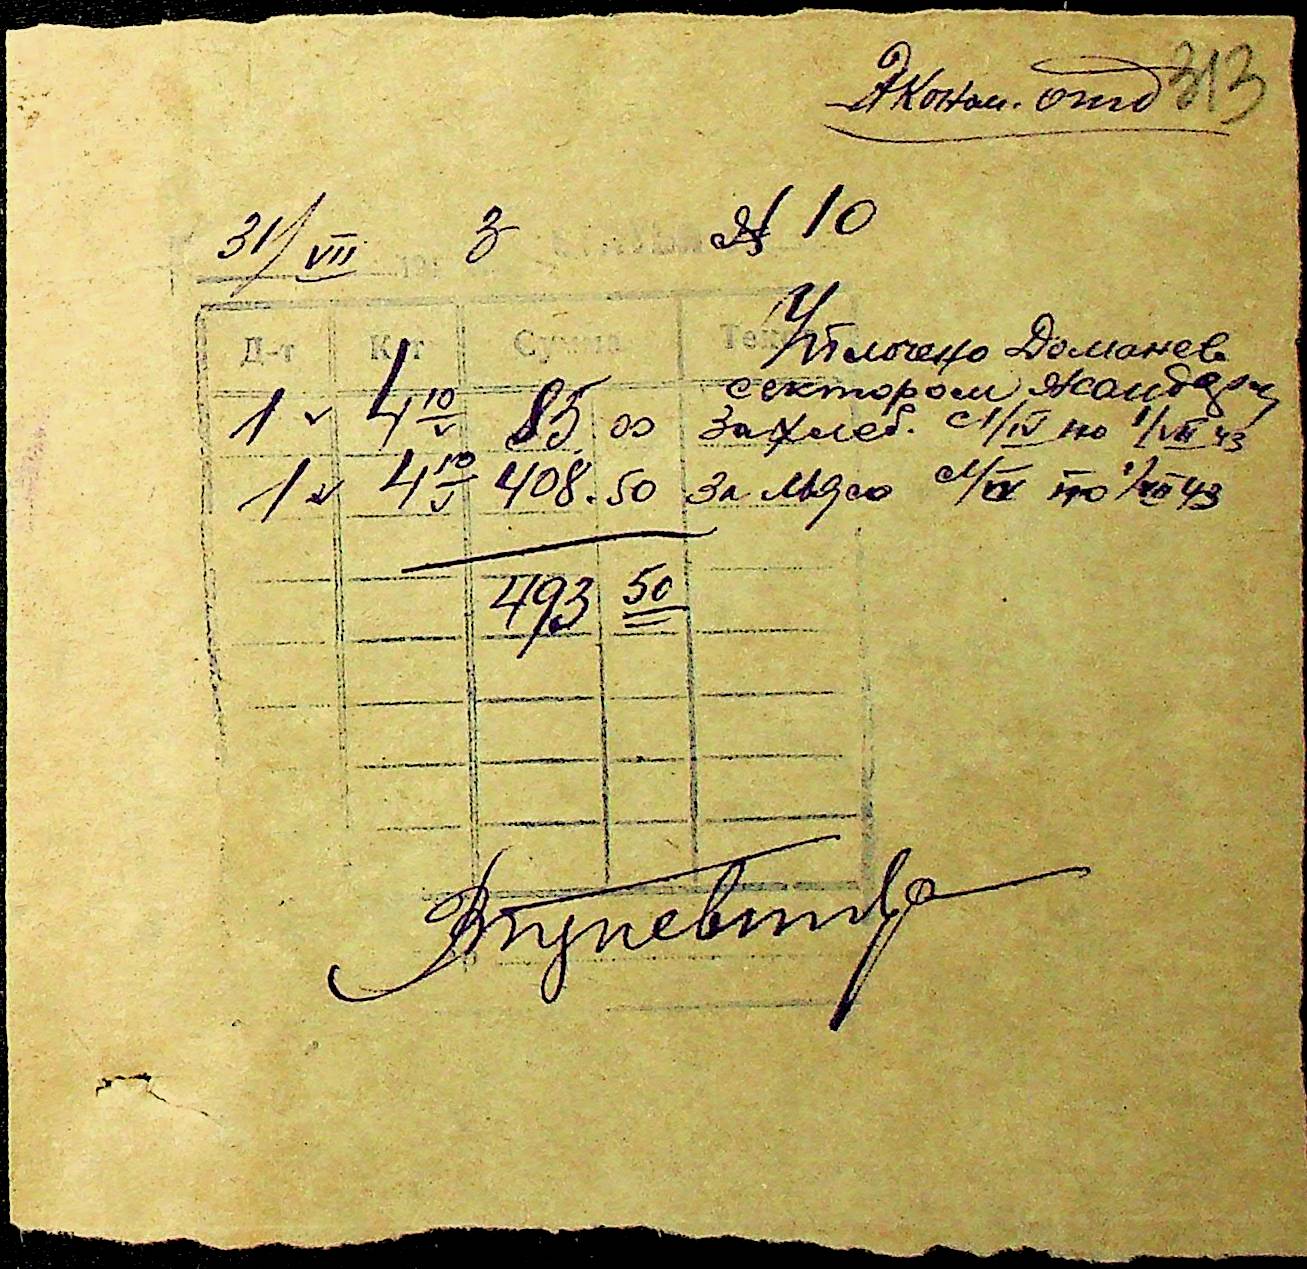 Эконом. отд 313
31/VII 3 № 10
Д-т К-т Сумма Текст
Уплочено Доманев
сектором жандарм
1 4 10 85.00 за хлеб. с 1/IV по 1/VII 43
1 4 10 408.50 за мясо с 1/IV по 1/VII 43
493 50